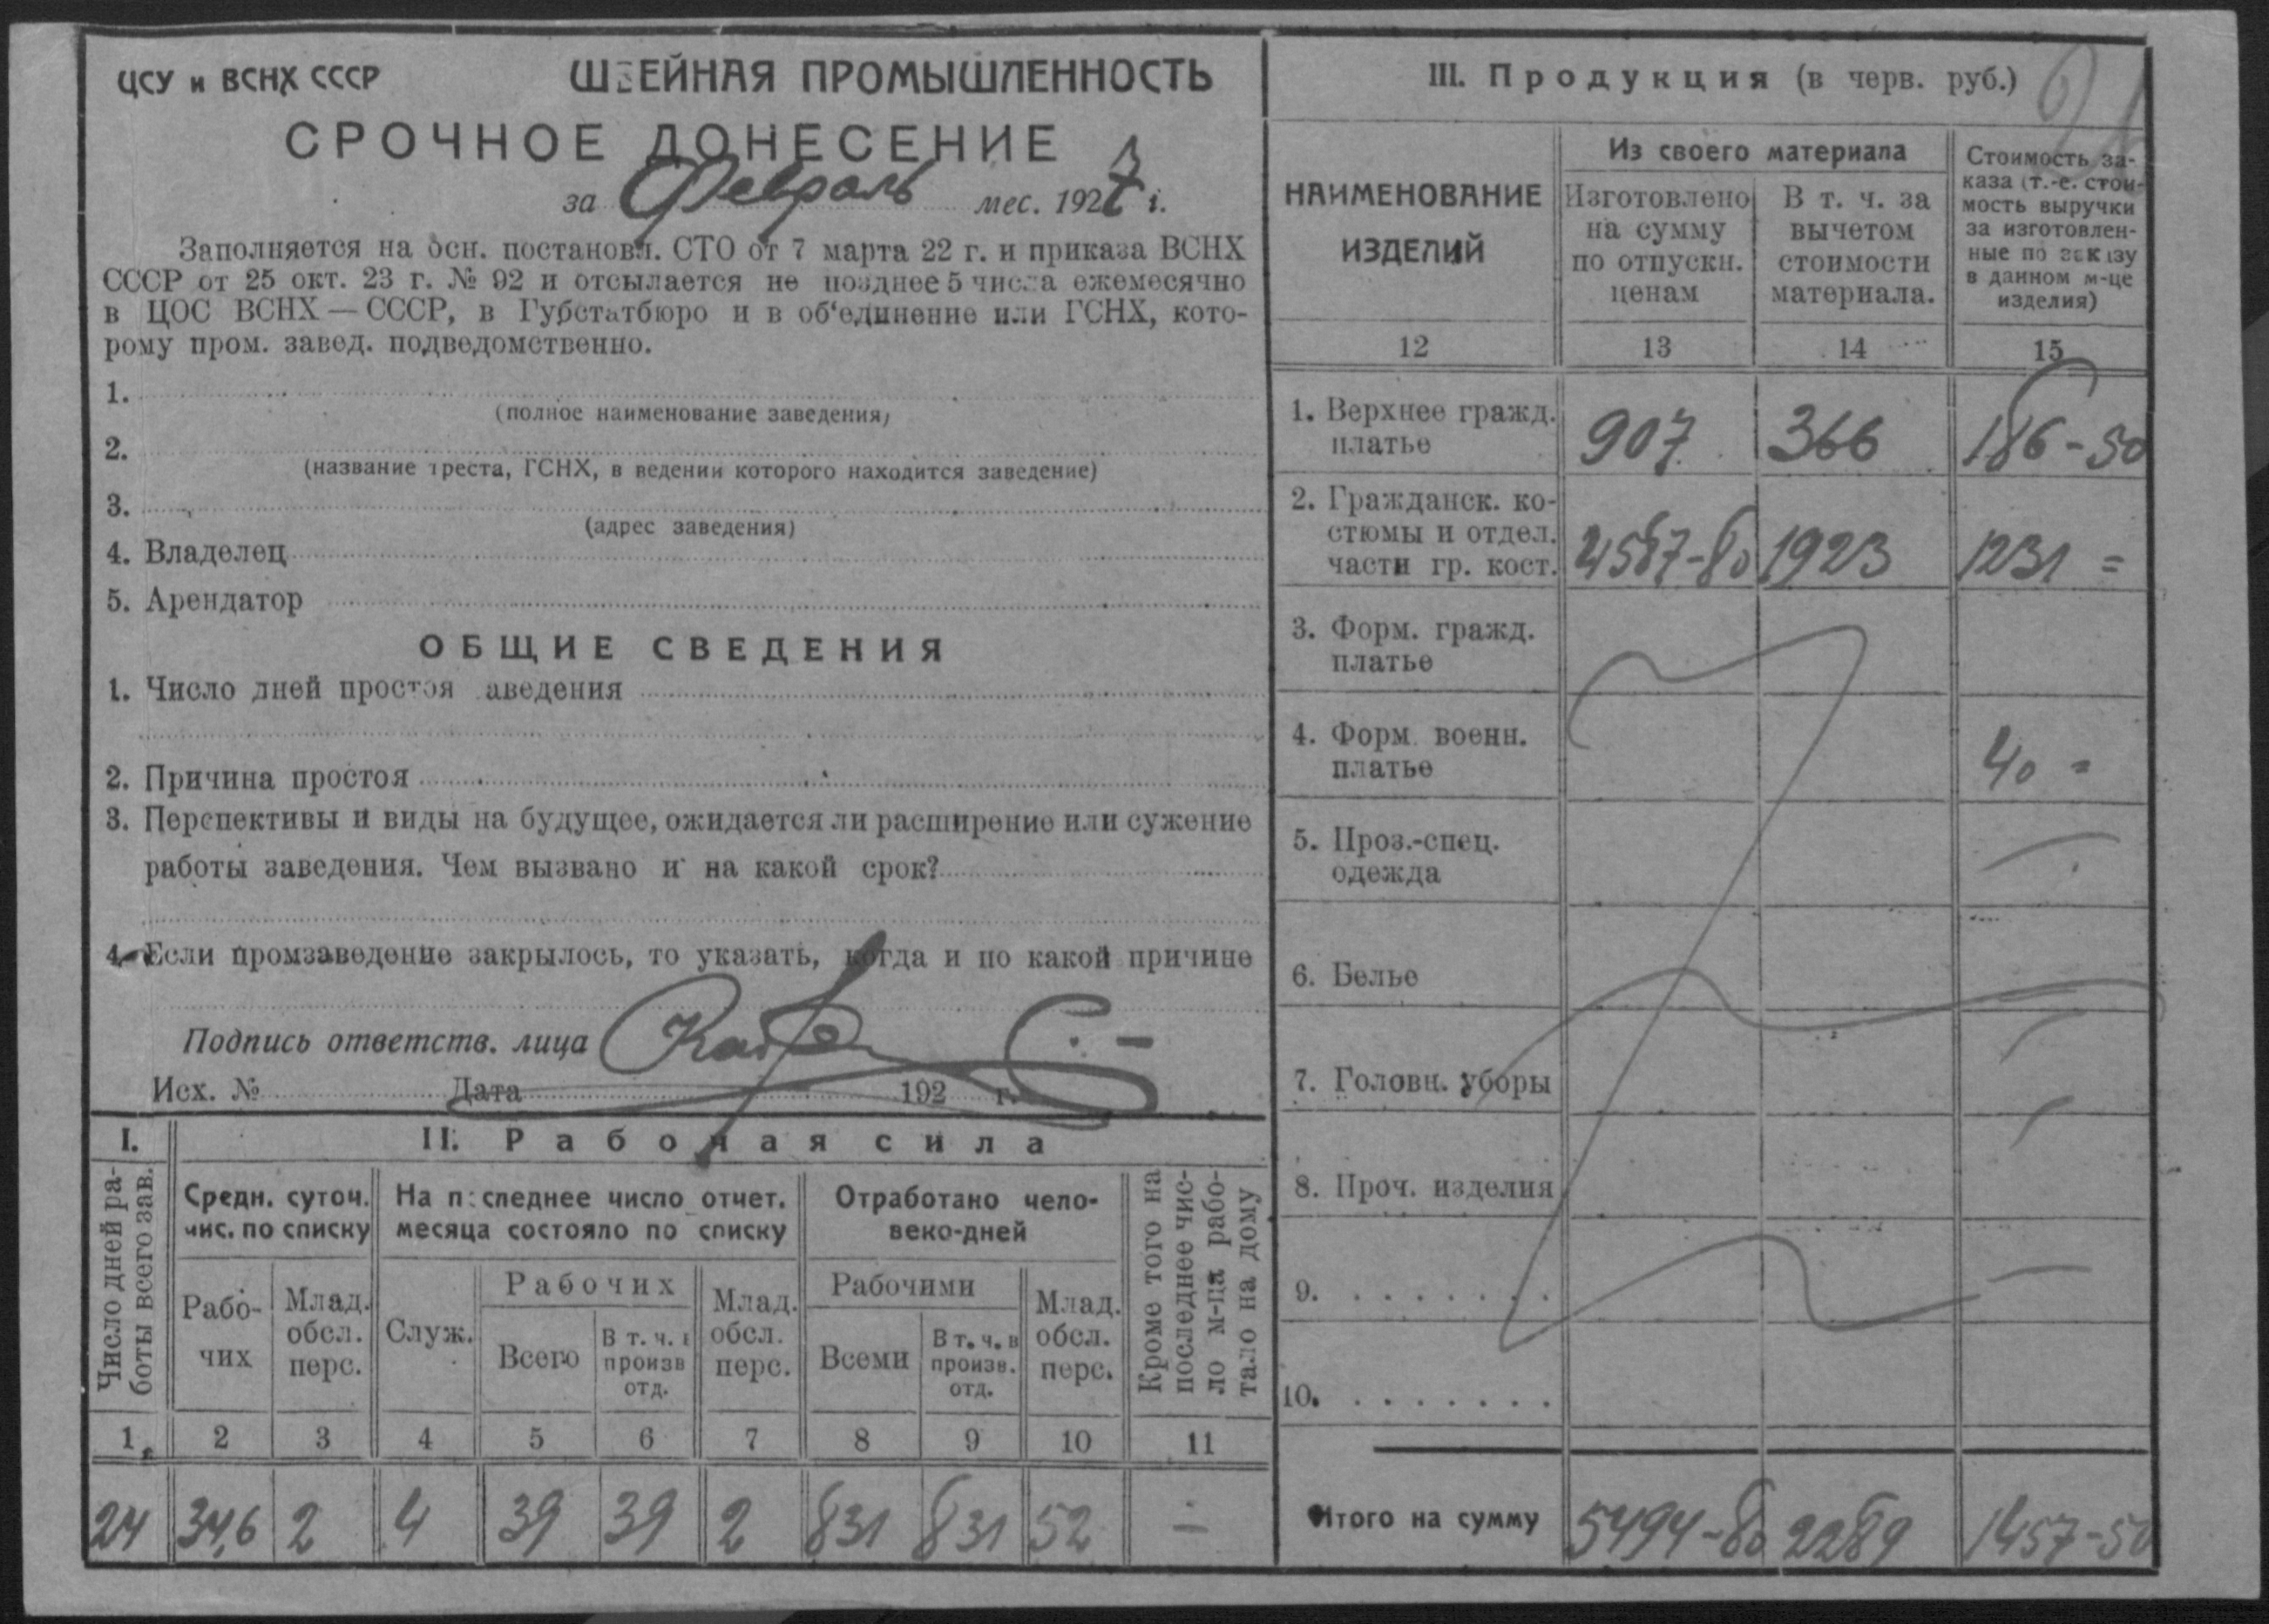 ЦСУ и ВСНХ СССР
ШВЕЙНАЯ ПРОМЫШЛЕННОСТЬ
СРОЧНОЕ ДОНЕСЕНИЕ
за Февраль мес. 1927 г.
Заполняется на осн. постановл. СТО от 7 марта 22 г. и приказа ВСНХ
СССР от 25 окт. 23 г. № 92 и отсылается не позднее 5 числа ежемесячно
в ЦОС ВСНХ — СССР, в Губстатбюро и в об‘единение или ГСНХ, кото-
рому пром. завед. подведомственно.
1.
(полное наименование заведения)
2.
(название треста, ГСНХ, в ведении которого находится заведение)
3.
(адрес заведения)
4. Владелец
5. Арендатор
ОБЩИЕ СВЕДЕНИЯ
1. Число дней простоя заведения
2. Причина простоя
3. Перспективы и виды на будущее, ожидается ли расширение или сужение
работы заведения. Чем вызвано и на какой срок?
4. Если промзаведение закрылось, то указать, когда и по какой причине
Подпись ответств. лица
Исх. № Дата 192 г.
I.
II. Рабочая сила
Число дней ра-
боты всего зав.
Средн. суточ.
чис. по списку
На последнее число отчет.
месяца состояло по списку
Отработано чело-
веко-дней
Кроме того на
последнее чис-
ло м-ца рабо-
тало на дому
Рабо-
чих
Млад.
обсл.
перс.
Служ.
Рабочих
Всего
В т. ч. в
произв
отд.
Млад.
обсл.
перс.
Рабочими
Всеми
В т. ч. в
произв.
отд.
Млад.
обсл.
перс.
1 2 3 4 5 6 7 8 9 10 11
24 34,6 2 4 39 39 2 831 831 52 —
III. Продукция (в черв. руб.)
НАИМЕНОВАНИЕ
ИЗДЕЛИЙ
Из своего материала
Изготовлено
на сумму
по отпускн.
ценам
В т. ч. за
вычетом
стоимости
материала.
Стоимость за-
каза (т.-е. стои-
мость выручки
за изготовлен-
ные по заказу
в данном м-це
изделия)
12 13 14 15
1. Верхнее гражд.
платье
907 366 186-50
2. Гражданск. ко-
стюмы и отдел.
части гр. кост.
4587-80 1923 1231 =
3. Форм. гражд.
платье
4. Форм. военн.
платье
40 =
5. Проз.-спец.
одежда
—
6. Белье
7. Головн. уборы
—
8. Проч. изделия
—
9. . . . . . . .
—
10. . . . . . . .
Итого на сумму 5494-80 2289 1457-50